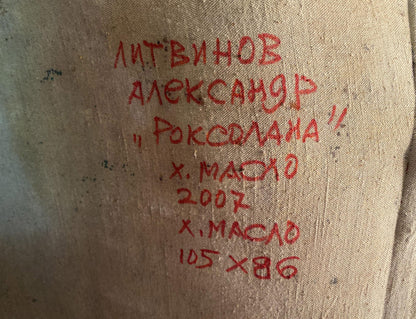 ЛИТВИНОВ
АЛЕКСАНДР
„РОКСОЛАНА"
Х. МАСЛО
2007
Х. МАСЛО
105 Х 86